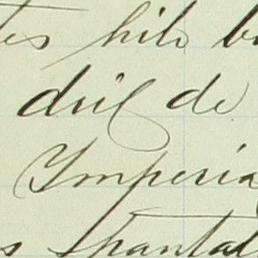 tes hilo b
dril de
Imperia
s pantal